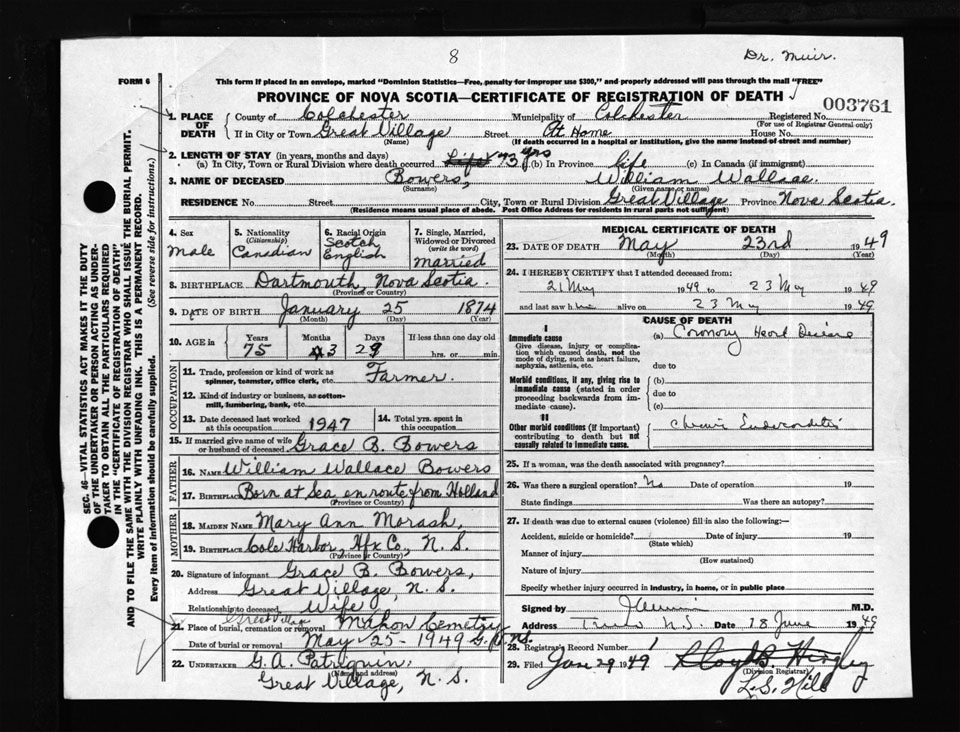 8
Dr. Muir.
FORM 6
This form if placed in an envelope, marked "Dominion Statistics—Free, penalty for improper use $300," and properly addressed will pass through the mail "FREE"
PROVINCE OF NOVA SCOTIA—CERTIFICATE OF REGISTRATION OF DEATH
003761
1. PLACE OF DEATH
County of Colchester Municipality of Colchester Registered No.
(For use of Registrar General only)
If in City or Town Great Village Street At Home House No.
(Name) (If death occurred in a hospital or institution, give the name instead of street and number)
2. LENGTH OF STAY (in years, months and days)
(a) In City, Town or Rural Division where death occurred Life 73 yrs (b) In Province life (c) In Canada (if immigrant)
3. NAME OF DECEASED Bowers, William Wallace.
(Surname) (Given name or names)
RESIDENCE No. Street City, Town or Rural Division Great Village Province Nova Scotia.
(Residence means usual place of abode. Post Office Address for residents in rural parts not sufficient)
4. Sex
Male
5. Nationality
(Citizenship)
Canadian
6. Racial Origin
Scotch
English
7. Single, Married, Widowed or Divorced
(write the word)
Married
8. BIRTHPLACE Dartmouth, Nova Scotia.
(Province or Country)
9. DATE OF BIRTH January 25 1874
(Month) (Day) (Year)
10. AGE in Years Months Days If less than one day old
75 3 29 hrs. or min.
OCCUPATION
11. Trade, profession or kind of work as spinner, teamster, office clerk, etc. Farmer.
12. Kind of industry or business, as cotton-mill, lumbering, bank, etc.
13. Date deceased last worked at this occupation 1947
14. Total yrs. spent in this occupation
15. If married give name of wife or husband of deceased Grace B. Bowers
FATHER
16. NAME William Wallace Bowers
17. BIRTHPLACE Born at Sea en route from Holland
(Province or Country)
MOTHER
18. MAIDEN NAME Mary Ann Morash,
19. BIRTHPLACE Cole Harbor, Hfx Co., N. S.
(Province or Country)
20. Signature of informant Grace B. Bowers,
Address Great Village, N. S.
Relationship to deceased Wife
Great Village
21. Place of burial, cremation or removal Mahon Cemetry
Date of burial or removal May 25 - 1949 G.V. N.S.
22. UNDERTAKER G. A. Patriquin,
(Name and address)
Great Village, N. S.
MEDICAL CERTIFICATE OF DEATH
23. DATE OF DEATH May 23rd 1949
(Month) (Day) (Year)
24. I HEREBY CERTIFY that I attended deceased from:
21 May 1949 to 23 May 1949
and last saw him alive on 23 May 1949
CAUSE OF DEATH
I
Immediate cause
Give disease, injury or complication which caused death, not the mode of dying, such as heart failure, asphyxia, asthenia, etc.
(a) Coronory Heart Disease
due to
Morbid conditions, if any, giving rise to immediate cause (stated in order proceeding backwards from immediate cause).
(b)
due to
(c)
II
Other morbid conditions (if important) contributing to death but not causally related to immediate cause.
25. If a woman, was the death associated with pregnancy?
26. Was there a surgical operation? No Date of operation 19
State findings Was there an autopsy?
27. If death was due to external causes (violence) fill in also the following:—
Accident, suicide or homicide? Date of injury 19
(State which)
Manner of injury
(How sustained)
Nature of injury
Specify whether injury occurred in industry, in home, or in public place
Signed by M.D.
Address Truro N.S. Date 18 June 1949
28. Registrar's Record Number 1
29. Filed June 29 1949
(Division Registrar)
L.S. Hill
SEC. 46—VITAL STATISTICS ACT MAKES IT THE DUTY OF THE UNDERTAKER OR PERSON ACTING AS UNDERTAKER TO OBTAIN ALL THE PARTICULARS REQUIRED IN THE "CERTIFICATE OF REGISTRATION OF DEATH" AND TO FILE THE SAME WITH THE DIVISION REGISTRAR WHO SHALL ISSUE THE BURIAL PERMIT.
WRITE PLAINLY WITH UNFADING INK. THIS IS A PERMANENT RECORD.
Every item of information should be carefully supplied. (See reverse side for instructions.)